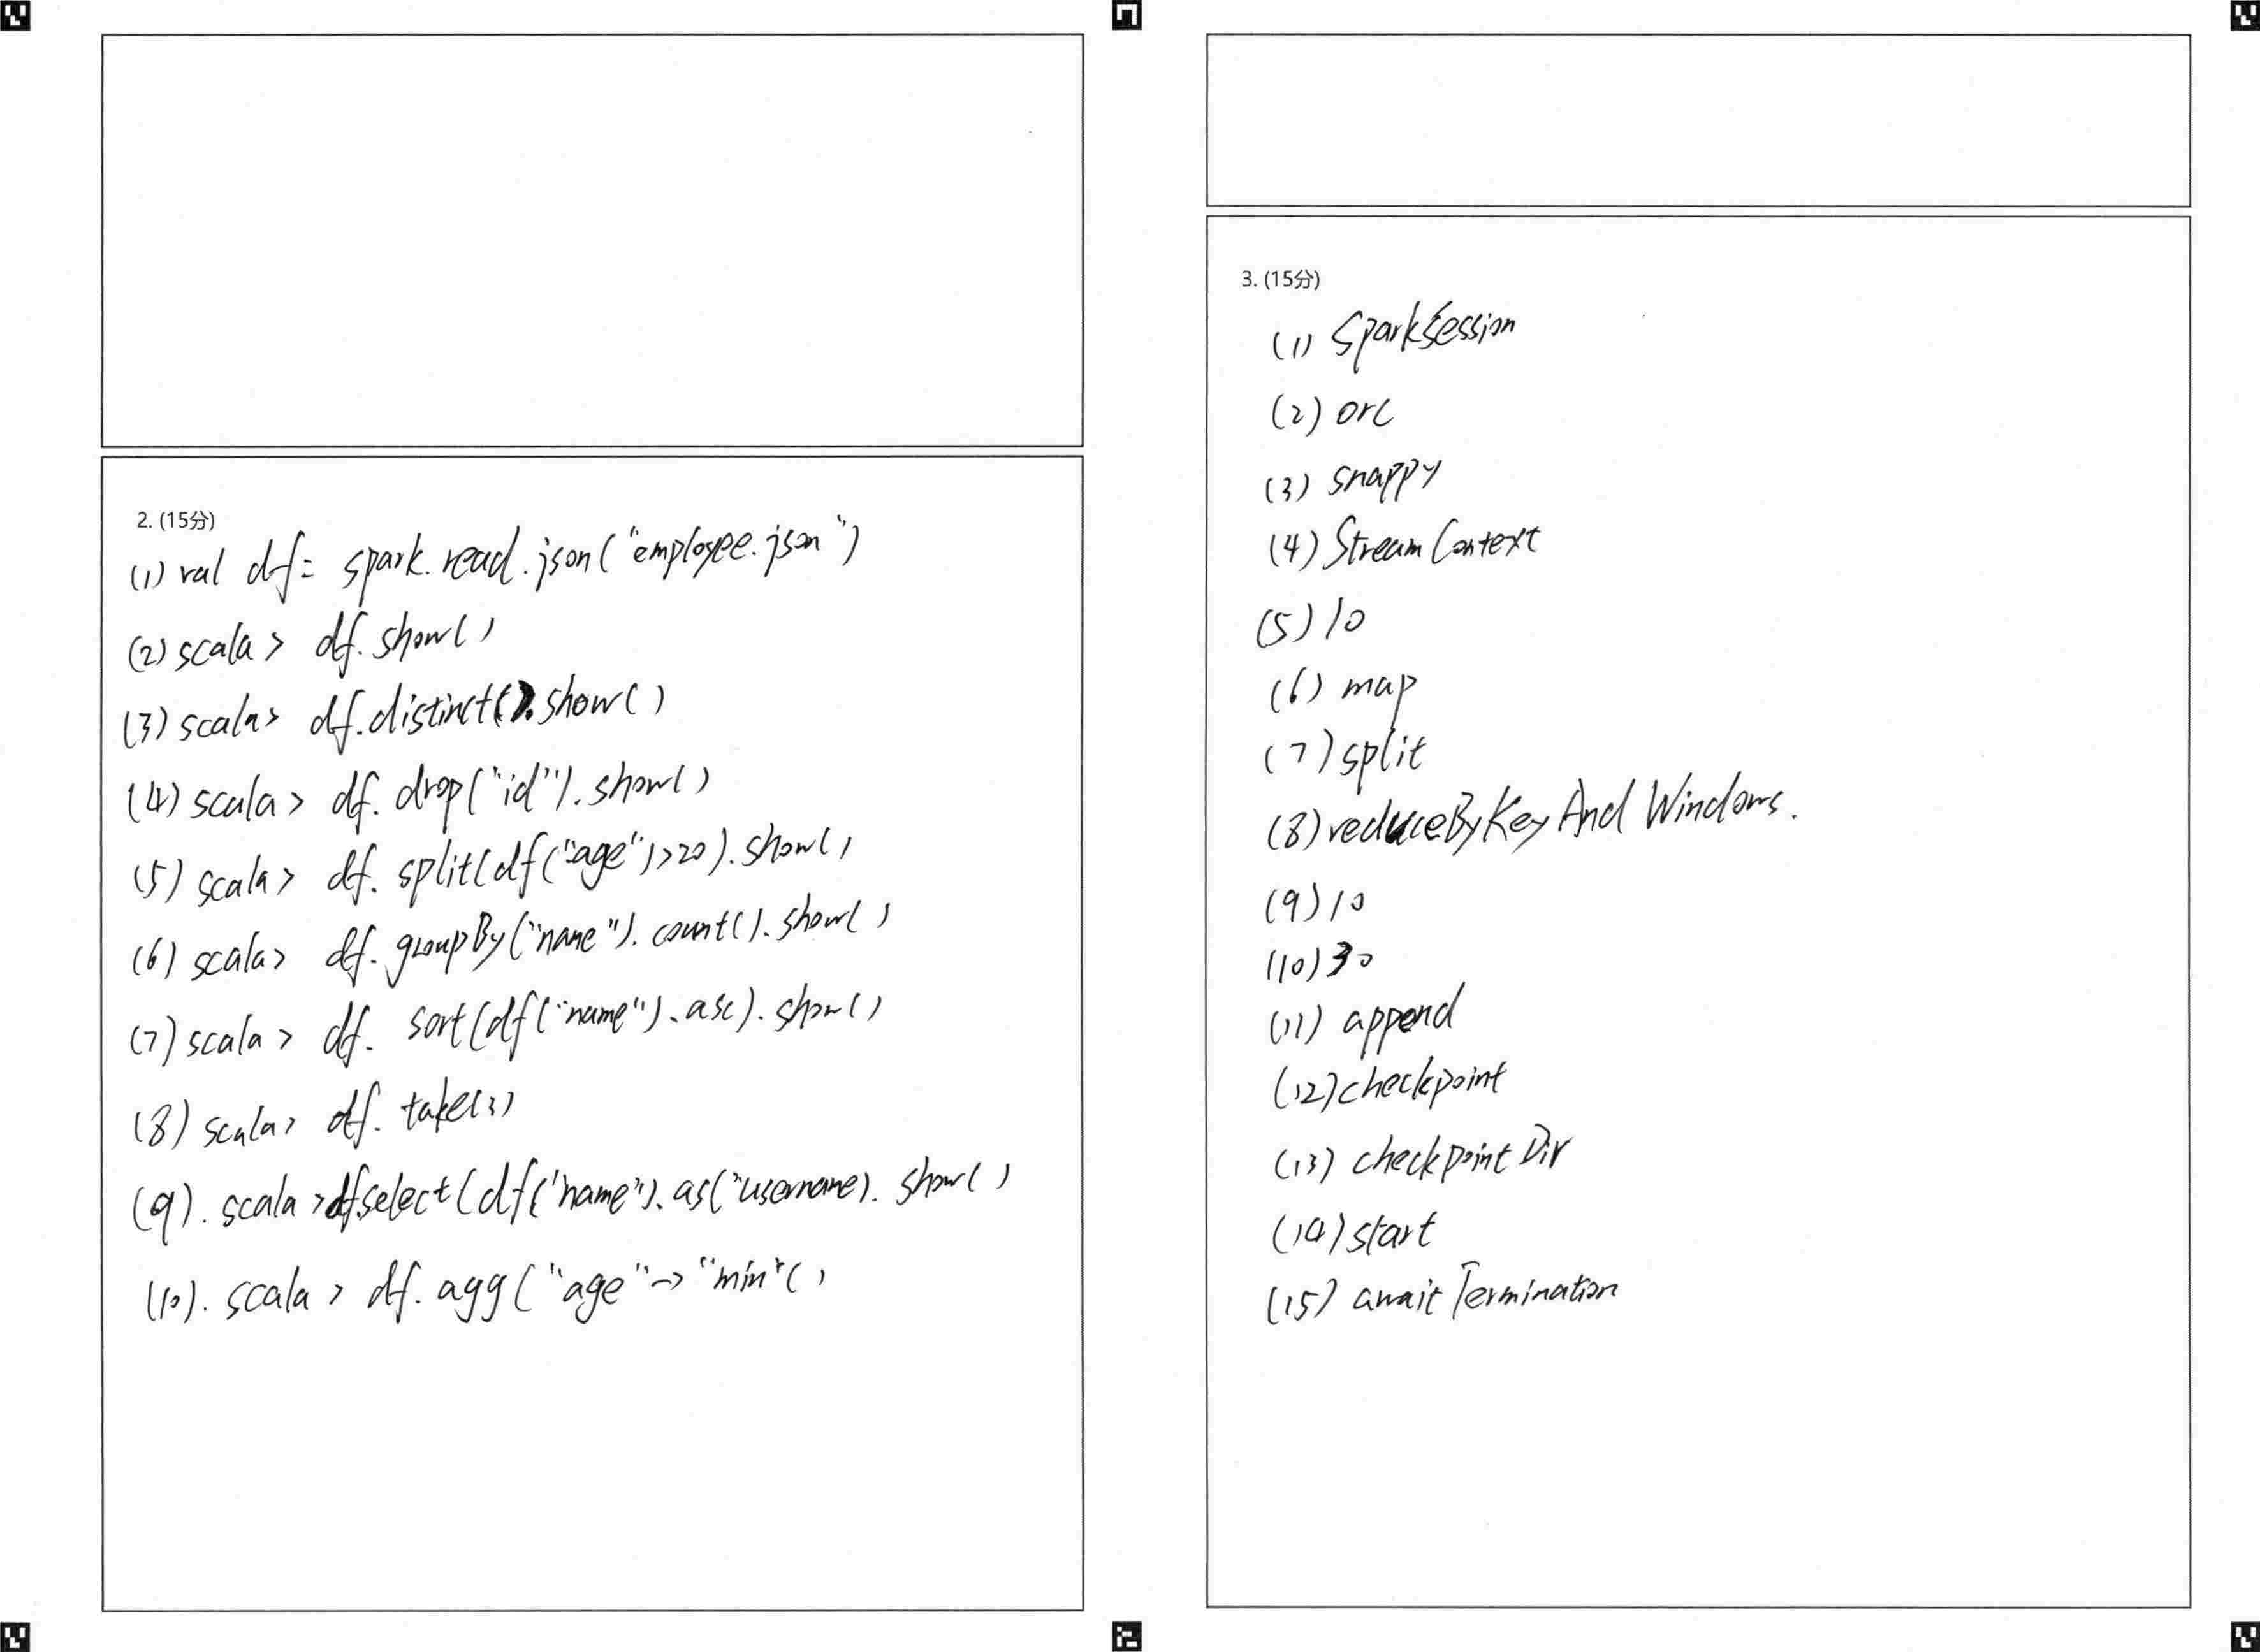 2. (15分)
(1) val df = spark.read.json("employee.json")
(2) scala> df.show()
(3) scala> df.distinct().show()
(4) scala> df.drop("id").show()
(5) scala> df.split(df("age")>20).show()
(6) scala> df.groupBy("name").count().show()
(7) scala> df.sort(df("name").asc).show()
(8) scala> df.take(3)
(9). scala>df.select(df("name").as("username).show()
(10). scala> df.agg("age"->"min"()
3. (15分)
(1) SparkSession
(2) orc
(3) snappy
(4) StreamContext
(5) 10
(6) map
(7) split
(8) reduceByKeyAndWindows.
(9) 10
(10) 30
(11) append
(12) checkpoint
(13) checkpointDir
(14) start
(15) awaitTermination